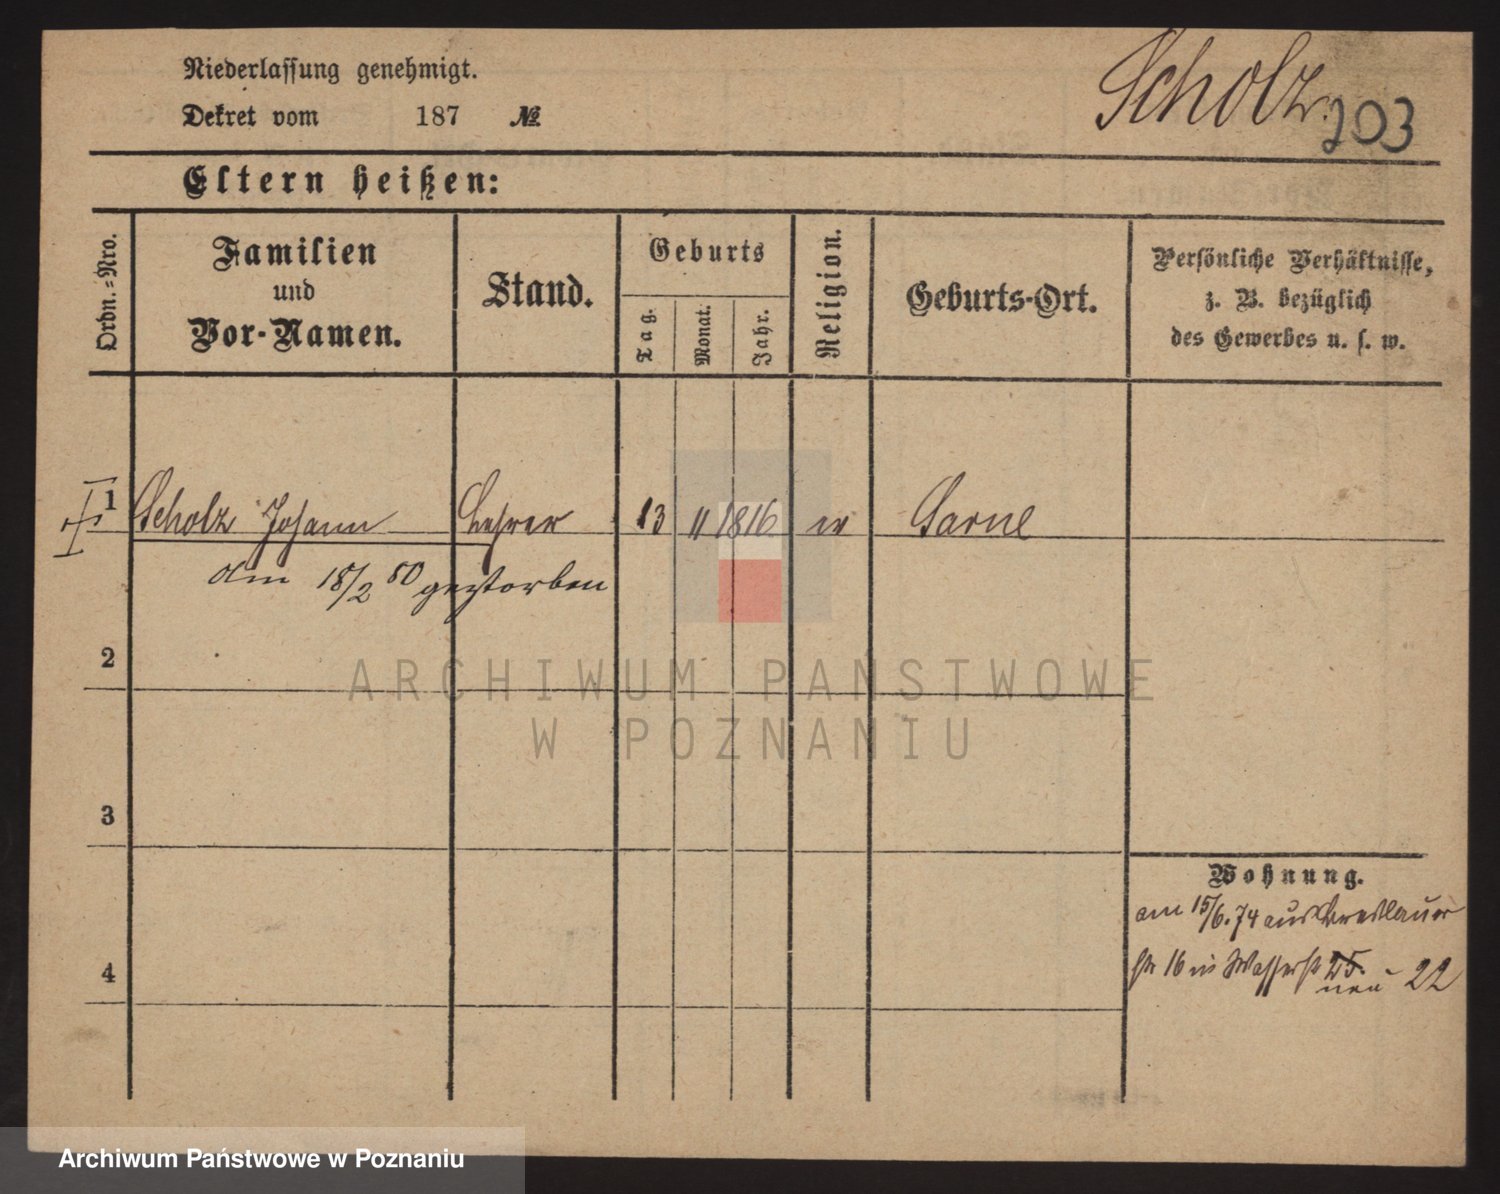 Niederlassung genehmigt.
Scholz.
Dekret vom 187 №
203
Eltern heißen:
Ordn.-Nro.
Familien
und
Vor-Namen.
Stand.
Geburts
Tag.
Monat.
Jahr.
Religion.
Geburts-Ort.
Persönliche Verhältnisse,
z. B. bezüglich
des Gewerbes u. s. w.
1 Scholz Johann Lehrer 13 11 1816 ev Sarne
am 18/2 80 gestorben
2
3
4
Wohnung.
am 15/6. 74 aus Breslauer
str 16 in Wasserstr 25.
neu - 22
ARCHIWUM PAŃSTWOWE
W POZNANIU
Archiwum Państwowe w Poznaniu